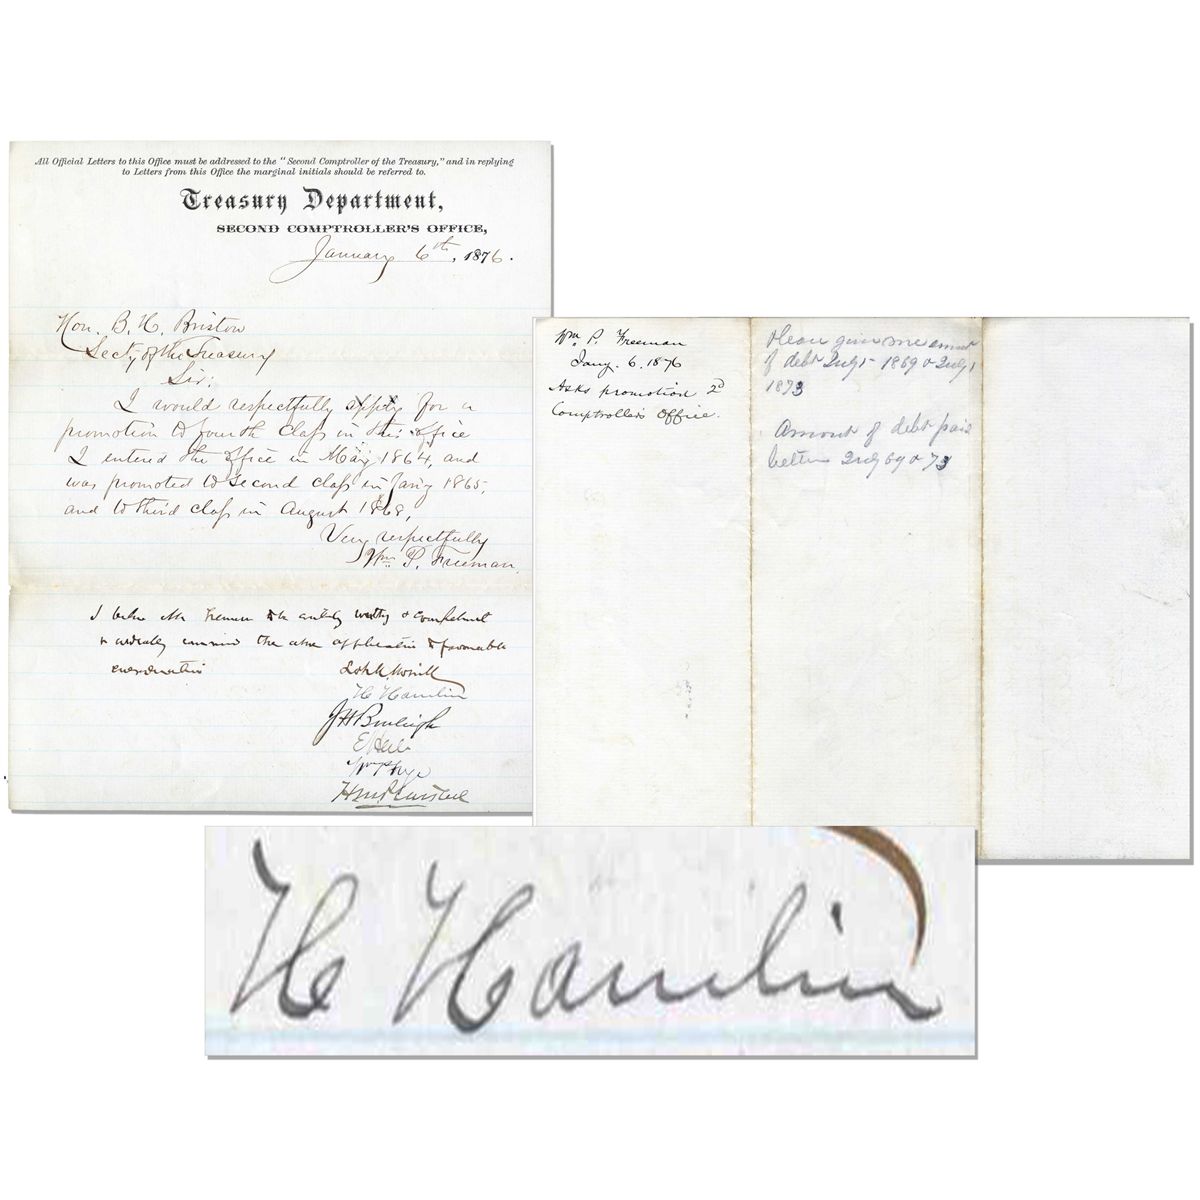 All Official Letters to this Office must be addressed to the "Second Comptroller of the Treasury," and in replying
to Letters from this Office the marginal initials should be referred to.
Treasury Department,
SECOND COMPTROLLER'S OFFICE,
January 6th, 1876.
Hon. B. H. Bristow
Secty of the Treasury
Sir:
I would respectfully apply for a
promotion to fourth class in this office
I entered the office in May 1864, and
was promoted to second class in Jany 1865,
and to third class in August 1868,
Very respectfully
Wm P. Freeman
I Mr Freeman to be entirely worthy & competent
& the above application to favorable
consideration
Lot M Morrill
H Hamlin
J H Burleigh
E Hale
Wm P Frye
Wm P. Freeman
Jany. 6. 1876
Asks promotion 2d
Comptroller's Office.
Please give me amount
of debt July 1 1869 & July 1
1873
Amount of debt paid
between July 69 & 73
H Hamlin